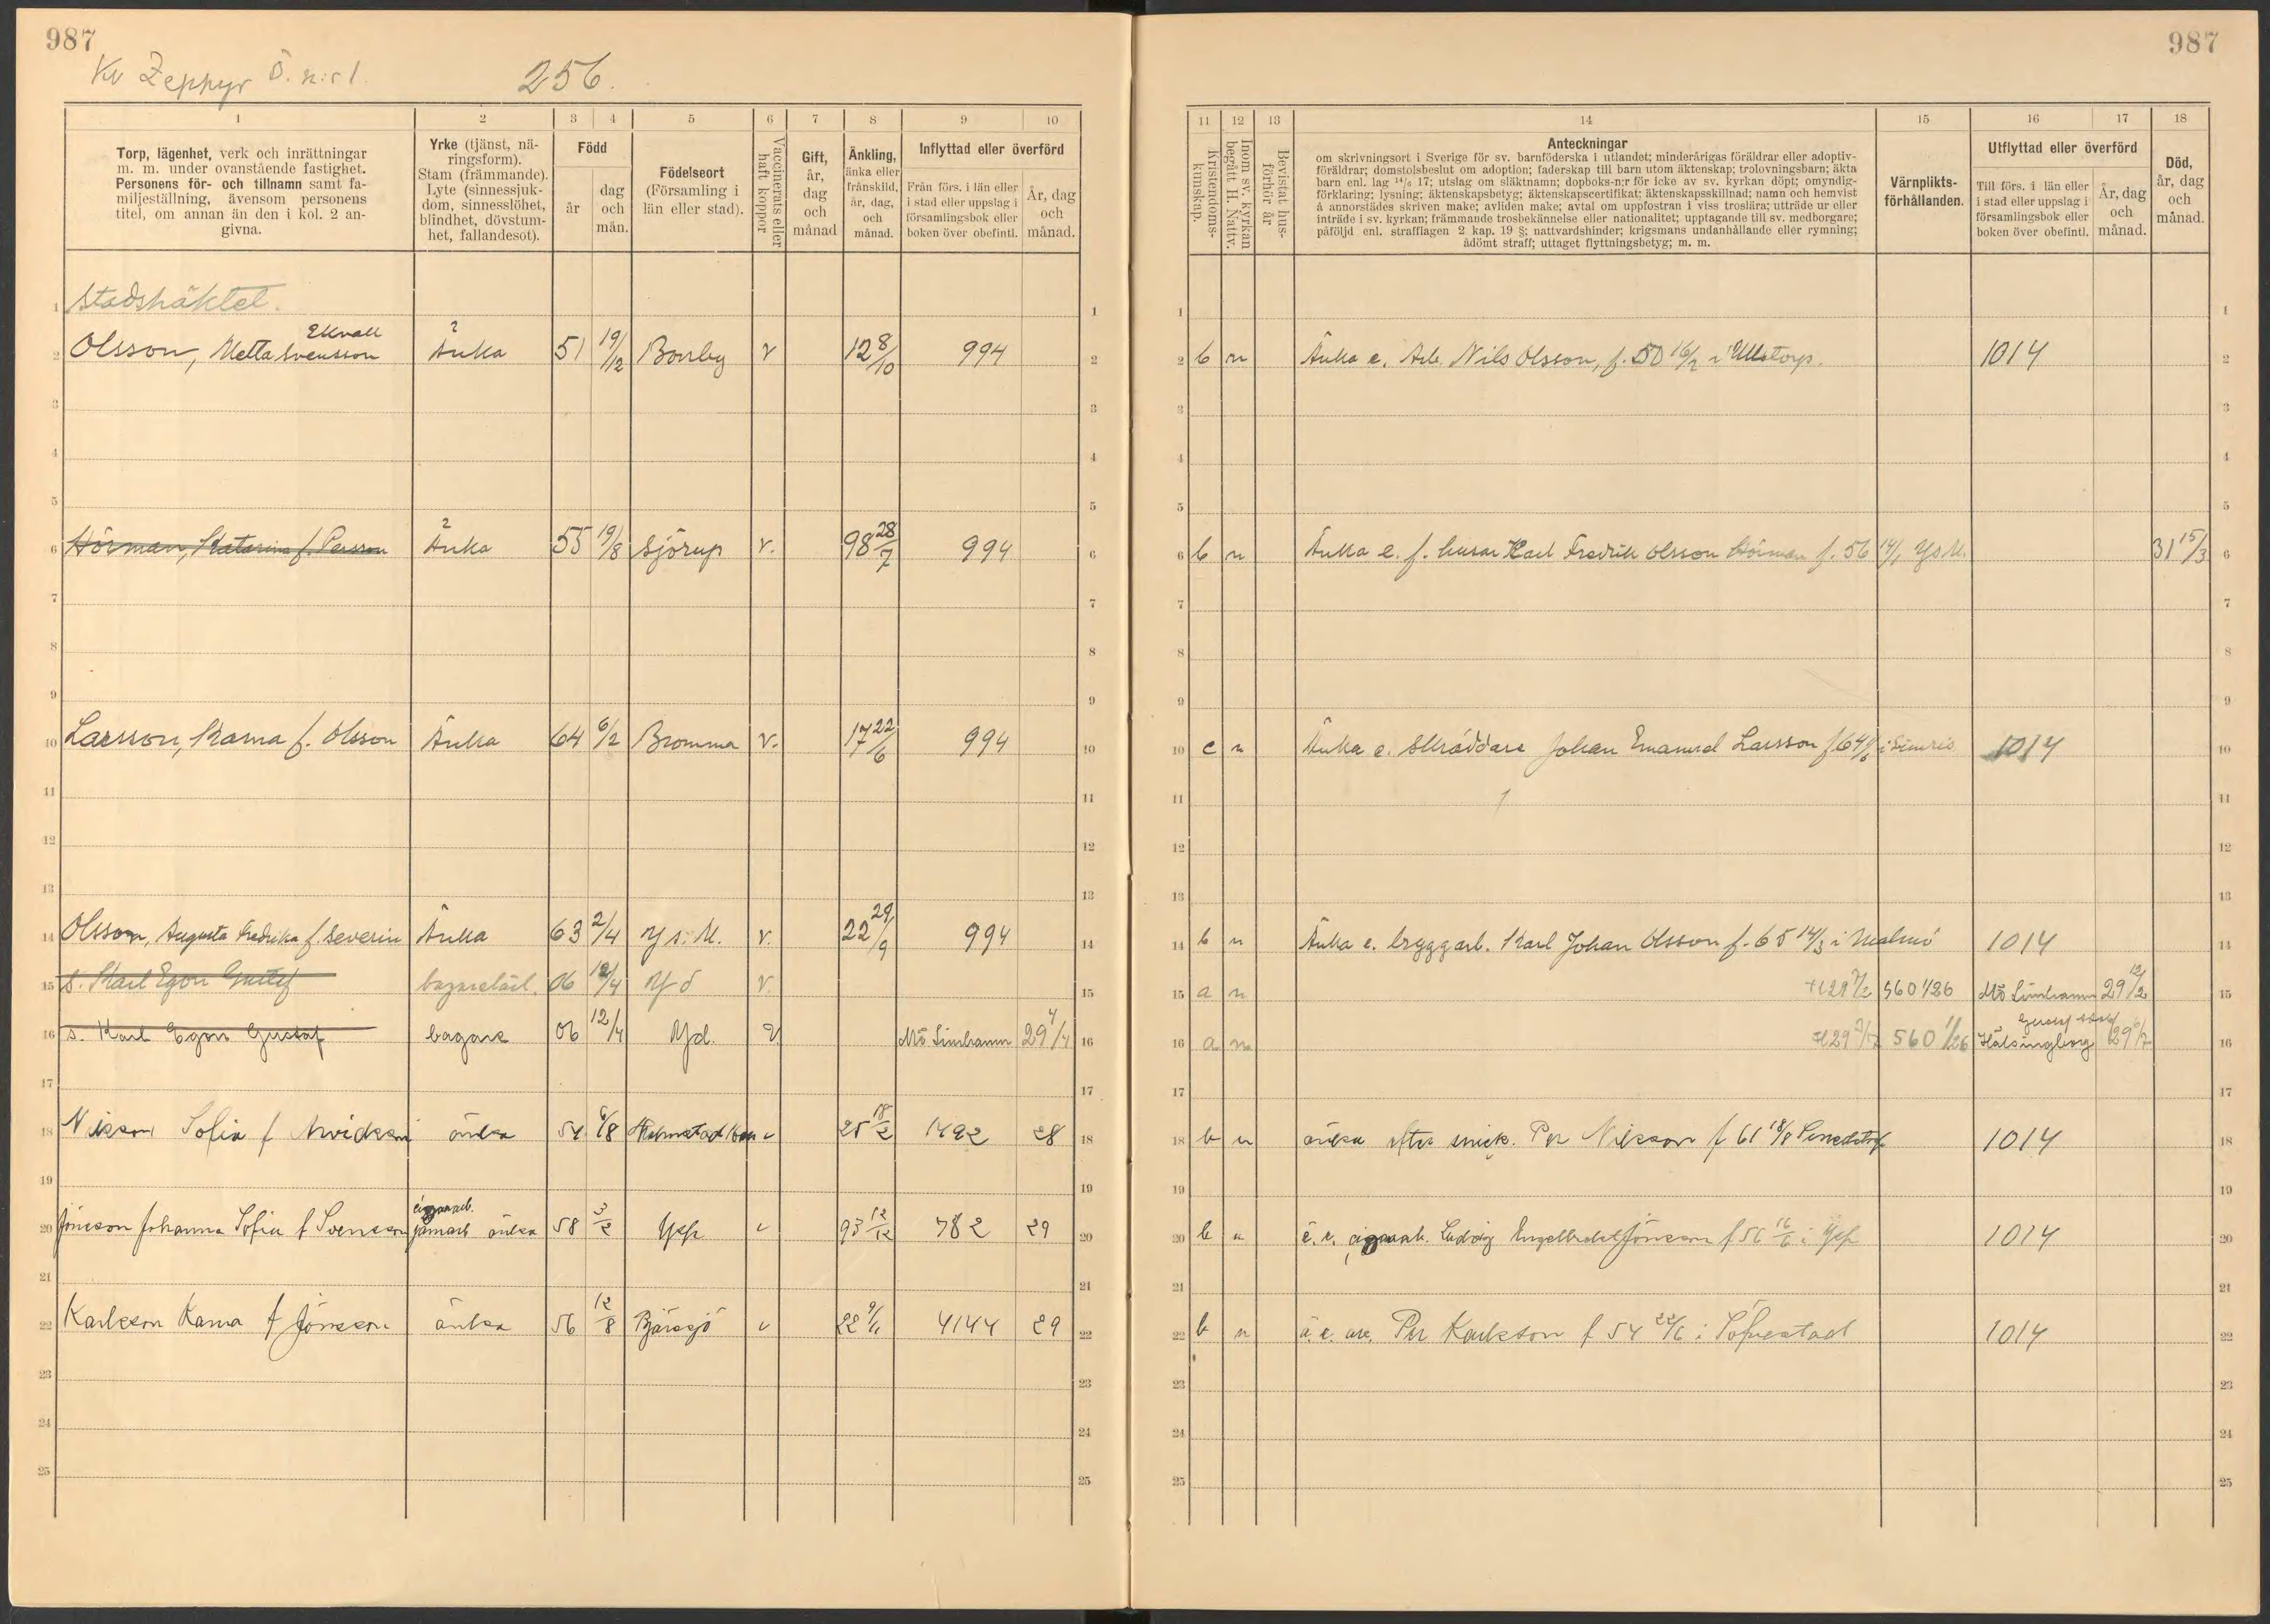 987
Kv Zephyr Ö. n:r 1.
256.
1 2 3 4 5 6 7 8 9 10
Torp, lägenhet, verk och inrättningar
m. m. under ovanstående fastighet.
Personens för- och tillnamn samt fa-
miljeställning, ävensom personens
titel, om annan än den i kol. 2 an-
givna.
Yrke (tjänst, nä-
ringsform).
Stam (främmande).
Lyte (sinnessjuk-
dom, sinnesslöhet,
blindhet, dövstum-
het, fallandesot).
Född
år
dag
och
mån.
Födelseort
(Församling i
län eller stad).
Vaccinerats eller
haft koppor
Gift,
år,
dag
och
månad
Änkling,
änka eller
frånskild,
år, dag,
och
månad.
Inflyttad eller överförd
Från förs. i län eller
i stad eller uppslag i
församlingsbok eller
boken över obefintl.
År, dag
och
månad.
1 Stadshäktet. 1
Ekvall
2 Olsson, Metta Svensson Änka 51 19/12 Borrby v 12 8/10 994 2
3 3
4 4
5 5
6 Hörman, Katarina f. Persson Änka 55 19/8 Sjörup v. 98 28/7 994 6
7 7
8 8
9 9
10 Larsson, Karna f. Olsson Änka 64 6/2 Bromma v. 17 22/6 994 10
11 11
12 12
13 13
14 Olsson, Augusta Fredrika f. Severin Änka 63 2/4 Ys. M. v. 22 29/9 994 14
15 s. Karl Egon Gustaf bagarelärl. 06 12/4 Yd v. 15
16 s. Karl Egon Gustaf bagare 06 12/4 Yd. v Mö Limhamn 29 4/4 16
17 17
18 Nilsson Sofia f Arvidsson änka 54 6/8 v 25 18/2 1492 28 18
19 19
cigarrarb.
20 Jönsson Johanna Sofia f Svensson änka 58 3/2 Ysp v 93 12/12 782 29 20
21 21
22 Karlsson Karna f Jönsson änka 56 12/8 Bjäresjö v 22 9/11 4144 29 22
23 23
24 24
25 25
987
11 12 13 14 15 16 17 18
Kristendoms-
kunskap.
Inom sv. kyrkan
begått H. Nattv.
Bevistat hus-
förhör år
Anteckningar
om skrivningsort i Sverige för sv. barnföderska i utlandet; minderårigas föräldrar eller adoptiv-
föräldrar; domstolsbeslut om adoption; faderskap till barn utom äktenskap; trolovningsbarn; äkta
barn enl. lag 14/6 17; utslag om släktnamn; dopboks-n:r för icke av sv. kyrkan döpt; omyndig-
förklaring; lysning; äktenskapsbetyg; äktenskapscertifikat; äktenskapsskillnad; namn och hemvist
å annorstädes skriven make; avliden make; avtal om uppfostran i viss troslära; utträde ur eller
inträde i sv. kyrkan; främmande trosbekännelse eller nationalitet; upptagande till sv. medborgare;
påföljd enl. strafflagen 2 kap. 19 §; nattvardshinder; krigsmans undanhållande eller rymning;
ådömt straff; uttaget flyttningsbetyg; m. m.
Värnplikts-
förhållanden.
Utflyttad eller överförd
Till förs. i län eller
i stad eller uppslag i
församlingsbok eller
boken över obefintl.
År, dag
och
månad.
Död,
år, dag
och
månad.
1 1
2 b n Änka e. Arb. Nils Olsson, f. 50 16/2 i Ullstorp. 1014 2
3 3
4 4
5 5
6 b n Änka e. f. husar Karl Fredrik Olsson Hörman f. 56 14/1 Ys M. 31 15/3 6
7 7
8 8
9 9
10 c n Änka e. Skräddare Johan Emanuel Larsson f 64 i Simris 1014 10
11 11
12 12
13 13
14 b n Änka e. bryggarb. Karl Johan Olsson f. 65 14/3 i Malmö 1014 14
15 a n 560 1/26 Mö Limhamn 29 12/2 15
16 a n 560 1/26 Hälsingborg 29 6/7 16
17 17
18 b n änka efter snick. Per Nilsson f 61 18/8 1014 18
19 19
20 b n ä. e. cigarrarb. Ludvig Engelbrekt Jönsson f 56 16/6 i Ysp 1014 20
21 21
22 b n ä. e. arb. Per Karlsson f 54 22/6 i Sövestad 1014 22
23 23
24 24
25 25